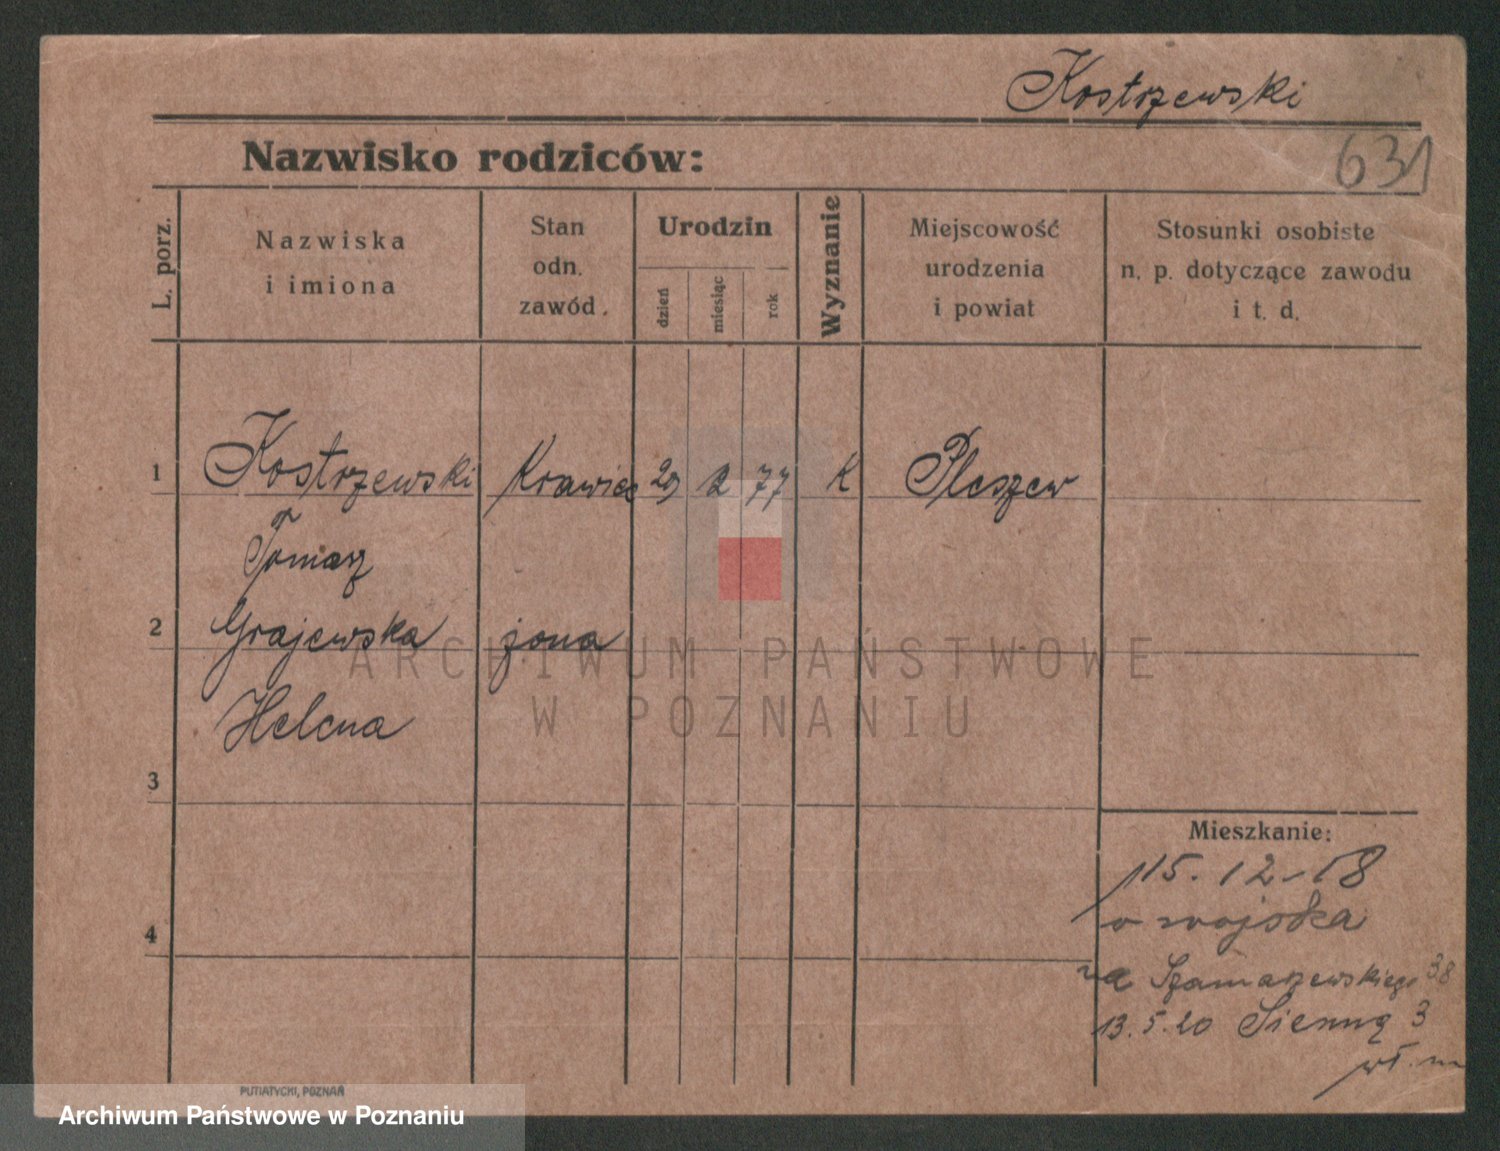 Kostrzewski
Nazwisko rodziców:
631
L. porz.
Nazwiska
i imiona
Stan
odn.
zawód.
Urodzin
dzień
miesiąc
rok
Wyznanie
Miejscowość
urodzenia
i powiat
Stosunki osobiste
n. p. dotyczące zawodu
i t. d.
1 Kostrzewski Krawiec 2 77 K Pleszew
Tomasz
2 Grajewska żona
Helena
ARCHIWUM PAŃSTWOWE
W POZNANIU
3
Mieszkanie:
15. 12 - 18
wojska
4
na Szamarzewskiego 38
13. 5. 20 Sienną 3
PUTIATYCKI, POZNAŃ
Archiwum Państwowe w Poznaniu